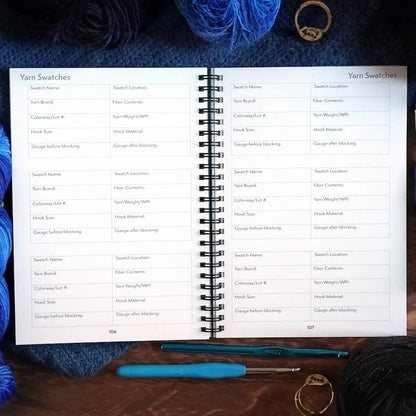 Yarn Swatches
Swatch Name: Swatch Location:
Yarn Brand: Fiber Contents:
Colorway/Lot #: Yarn Weight/WPI:
Hook Size: Hook Material:
Gauge before blocking: Gauge after blocking:
Swatch Name: Swatch Location:
Yarn Brand: Fiber Contents:
Colorway/Lot #: Yarn Weight/WPI:
Hook Size: Hook Material:
Gauge before blocking: Gauge after blocking:
Swatch Name: Swatch Location:
Yarn Brand: Fiber Contents:
Colorway/Lot #: Yarn Weight/WPI:
Hook Size: Hook Material:
Gauge before blocking: Gauge after blocking:
106
Yarn Swatches
Swatch Name: Swatch Location:
Yarn Brand: Fiber Contents:
Colorway/Lot #: Yarn Weight/WPI:
Hook Size: Hook Material:
Gauge before blocking: Gauge after blocking:
Swatch Name: Swatch Location:
Yarn Brand: Fiber Contents:
Colorway/Lot #: Yarn Weight/WPI:
Hook Size: Hook Material:
Gauge before blocking: Gauge after blocking:
Swatch Name: Swatch Location:
Yarn Brand: Fiber Contents:
Colorway/Lot #: Yarn Weight/WPI:
Hook Size: Hook Material:
Gauge before blocking: Gauge after blocking:
107